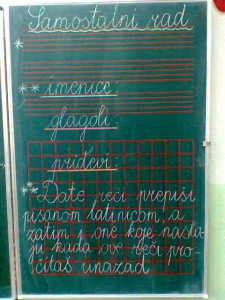 Samostalni rad
*
** imenice:
glagoli:
pridevi:
** Date reči prepiši
pisanom latinicom, a
zatim i one koje nasta-
ju kada ove reči pro-
čitaš unazad.